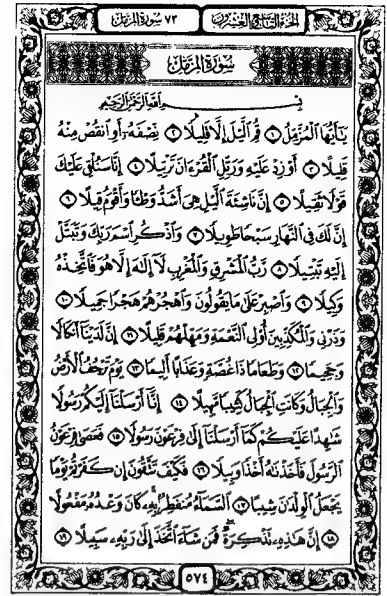 الجزء التاسع والعشرون ٧٣ سورة المزمل
سُورَةُ المُزَّمِّل
بِسْمِ اللَّهِ الرَّحْمَٰنِ الرَّحِيمِ
يَٰٓأَيُّهَا ٱلْمُزَّمِّلُ ۝١ قُمِ ٱلَّيْلَ إِلَّا قَلِيلًا ۝٢ نِّصْفَهُۥٓ أَوِ ٱنقُصْ مِنْهُ
قَلِيلًا ۝٣ أَوْ زِدْ عَلَيْهِ وَرَتِّلِ ٱلْقُرْءَانَ تَرْتِيلًا ۝٤ إِنَّا سَنُلْقِى عَلَيْكَ
قَوْلًا ثَقِيلًا ۝٥ إِنَّ نَاشِئَةَ ٱلَّيْلِ هِىَ أَشَدُّ وَطْـًٔا وَأَقْوَمُ قِيلًا ۝٦
إِنَّ لَكَ فِى ٱلنَّهَارِ سَبْحًا طَوِيلًا ۝٧ وَٱذْكُرِ ٱسْمَ رَبِّكَ وَتَبَتَّلْ
إِلَيْهِ تَبْتِيلًا ۝٨ رَّبُّ ٱلْمَشْرِقِ وَٱلْمَغْرِبِ لَآ إِلَٰهَ إِلَّا هُوَ فَٱتَّخِذْهُ
وَكِيلًا ۝٩ وَٱصْبِرْ عَلَىٰ مَا يَقُولُونَ وَٱهْجُرْهُمْ هَجْرًا جَمِيلًا ۝١٠
وَذَرْنِى وَٱلْمُكَذِّبِينَ أُو۟لِى ٱلنَّعْمَةِ وَمَهِّلْهُمْ قَلِيلًا ۝١١ إِنَّ لَدَيْنَآ أَنكَالًا
وَجَحِيمًا ۝١٢ وَطَعَامًا ذَا غُصَّةٍ وَعَذَابًا أَلِيمًا ۝١٣ يَوْمَ تَرْجُفُ ٱلْأَرْضُ
وَٱلْجِبَالُ وَكَانَتِ ٱلْجِبَالُ كَثِيبًا مَّهِيلًا ۝١٤ إِنَّآ أَرْسَلْنَآ إِلَيْكُمْ رَسُولًا
شَٰهِدًا عَلَيْكُمْ كَمَآ أَرْسَلْنَآ إِلَىٰ فِرْعَوْنَ رَسُولًا ۝١٥ فَعَصَىٰ فِرْعَوْنُ
ٱلرَّسُولَ فَأَخَذْنَٰهُ أَخْذًا وَبِيلًا ۝١٦ فَكَيْفَ تَتَّقُونَ إِن كَفَرْتُمْ يَوْمًا
يَجْعَلُ ٱلْوِلْدَٰنَ شِيبًا ۝١٧ ٱلسَّمَآءُ مُنفَطِرٌۢ بِهِۦ كَانَ وَعْدُهُۥ مَفْعُولًا
۝١٨ إِنَّ هَٰذِهِۦ تَذْكِرَةٌ فَمَن شَآءَ ٱتَّخَذَ إِلَىٰ رَبِّهِۦ سَبِيلًا ۝١٩
٥٧٤